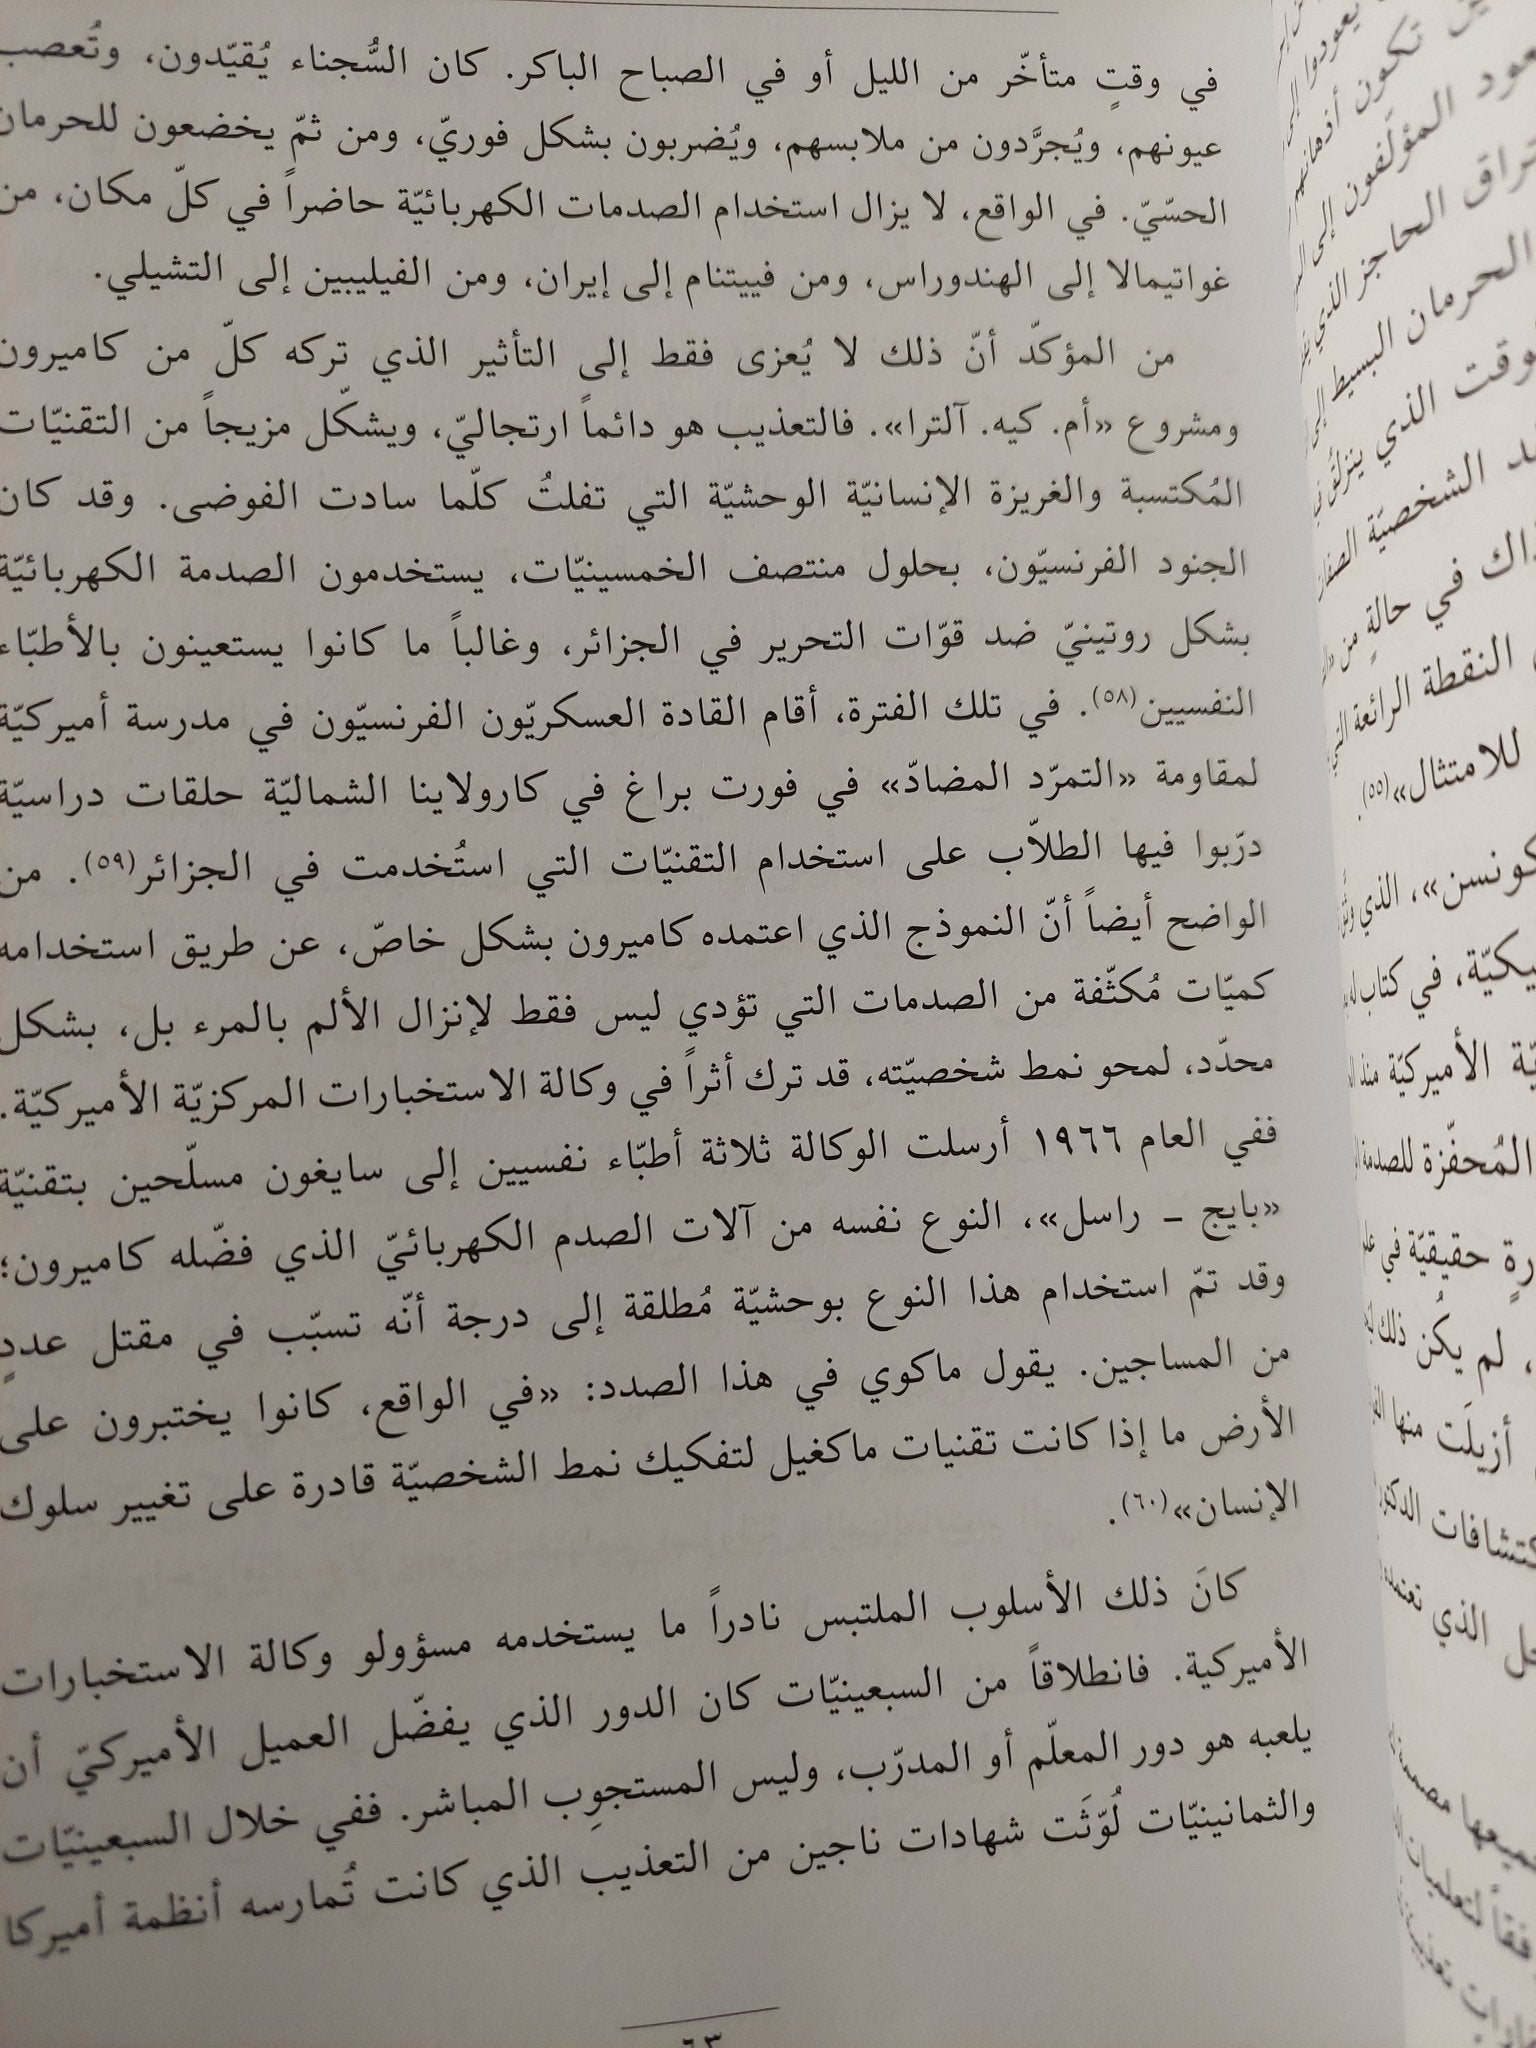 في وقتٍ متأخّر من الليل أو في الصباح الباكر. كان السُّجناء يُقيّدون، وتُعصب
عيونهم، ويُجرَّدون من ملابسهم، ويُضربون بشكل فوريّ، ومن ثمّ يخضعون للحرمان
الحسّيّ. في الواقع، لا يزال استخدام الصدمات الكهربائيّة حاضراً في كلّ مكان، من
غواتيمالا إلى الهندوراس، ومن فييتنام إلى إيران، ومن الفيليبين إلى التشيلي.
من المؤكدّ أنّ ذلك لا يُعزى فقط إلى التأثير الذي تركه كلّ من كاميرون
ومشروع «أم. كيه. آلترا». فالتعذيب هو دائماً ارتجاليّ، ويشكّل مزيجاً من التقنيّات
المُكتسبة والغريزة الإنسانيّة الوحشيّة التي تفلتُ كلّما سادت الفوضى. وقد كان
الجنود الفرنسيّون، بحلول منتصف الخمسينيّات، يستخدمون الصدمة الكهربائيّة
بشكل روتينيّ ضد قوّات التحرير في الجزائر، وغالباً ما كانوا يستعينون بالأطبّاء
النفسيين(٥٨). في تلك الفترة، أقام القادة العسكريّون الفرنسيّون في مدرسة أميركيّة
لمقاومة «التمرّد المضادّ» في فورت براغ في كارولاينا الشماليّة حلقات دراسيّة
درّبوا فيها الطلاّب على استخدام التقنيّات التي استُخدمت في الجزائر(٥٩). من
الواضح أيضاً أنّ النموذج الذي اعتمده كاميرون بشكل خاصّ، عن طريق استخدامه
كميّات مُكثّفة من الصدمات التي تؤدي ليس فقط لإنزال الألم بالمرء بل، بشكل
محدّد، لمحو نمط شخصيّته، قد ترك أثراً في وكالة الاستخبارات المركزيّة الأميركيّة.
ففي العام ١٩٦٦ أرسلت الوكالة ثلاثة أطبّاء نفسيين إلى سايغون مسلّحين بتقنيّة
«بايج – راسل»، النوع نفسه من آلات الصدم الكهربائيّ الذي فضّله كاميرون؛
وقد تمّ استخدام هذا النوع بوحشيّة مُطلقة إلى درجة أنّه تسبّب في مقتل عددٍ
من المساجين. يقول ماكوي في هذا الصدد: «في الواقع، كانوا يختبرون على
الأرض ما إذا كانت تقنيات ماكغيل لتفكيك نمط الشخصيّة قادرة على تغيير سلوك
الإنسان»(٦٠).
كانَ ذلك الأسلوب الملتبس نادراً ما يستخدمه مسؤولو وكالة الاستخبارات
الأميركية. فانطلاقاً من السبعينيّات كان الدور الذي يفضّل العميل الأميركيّ أن
يلعبه هو دور المعلّم أو المدرّب، وليس المستجوِب المباشر. ففي خلال السبعينيّات
والثمانينيّات لُوّثَت شهادات ناجين من التعذيب الذي كانت تُمارسه أنظمة أميركا
٦٣
يعودوا إلى
تكون أذهانهم
يعود المؤلّفون إلى
الحاجز الذي
الحرمان البسيط إلى
وقت الذي ينزلق
الشخصيّة
في حالةٍ من
النقطة الرائعة
للامتثال»(٥٥).
الذي
في كتاب
الأميركيّة منذ
المُحفّزة للصدمة
حقيقيّة في
، لم يكُن ذلك
أزيلَت منها
الذي